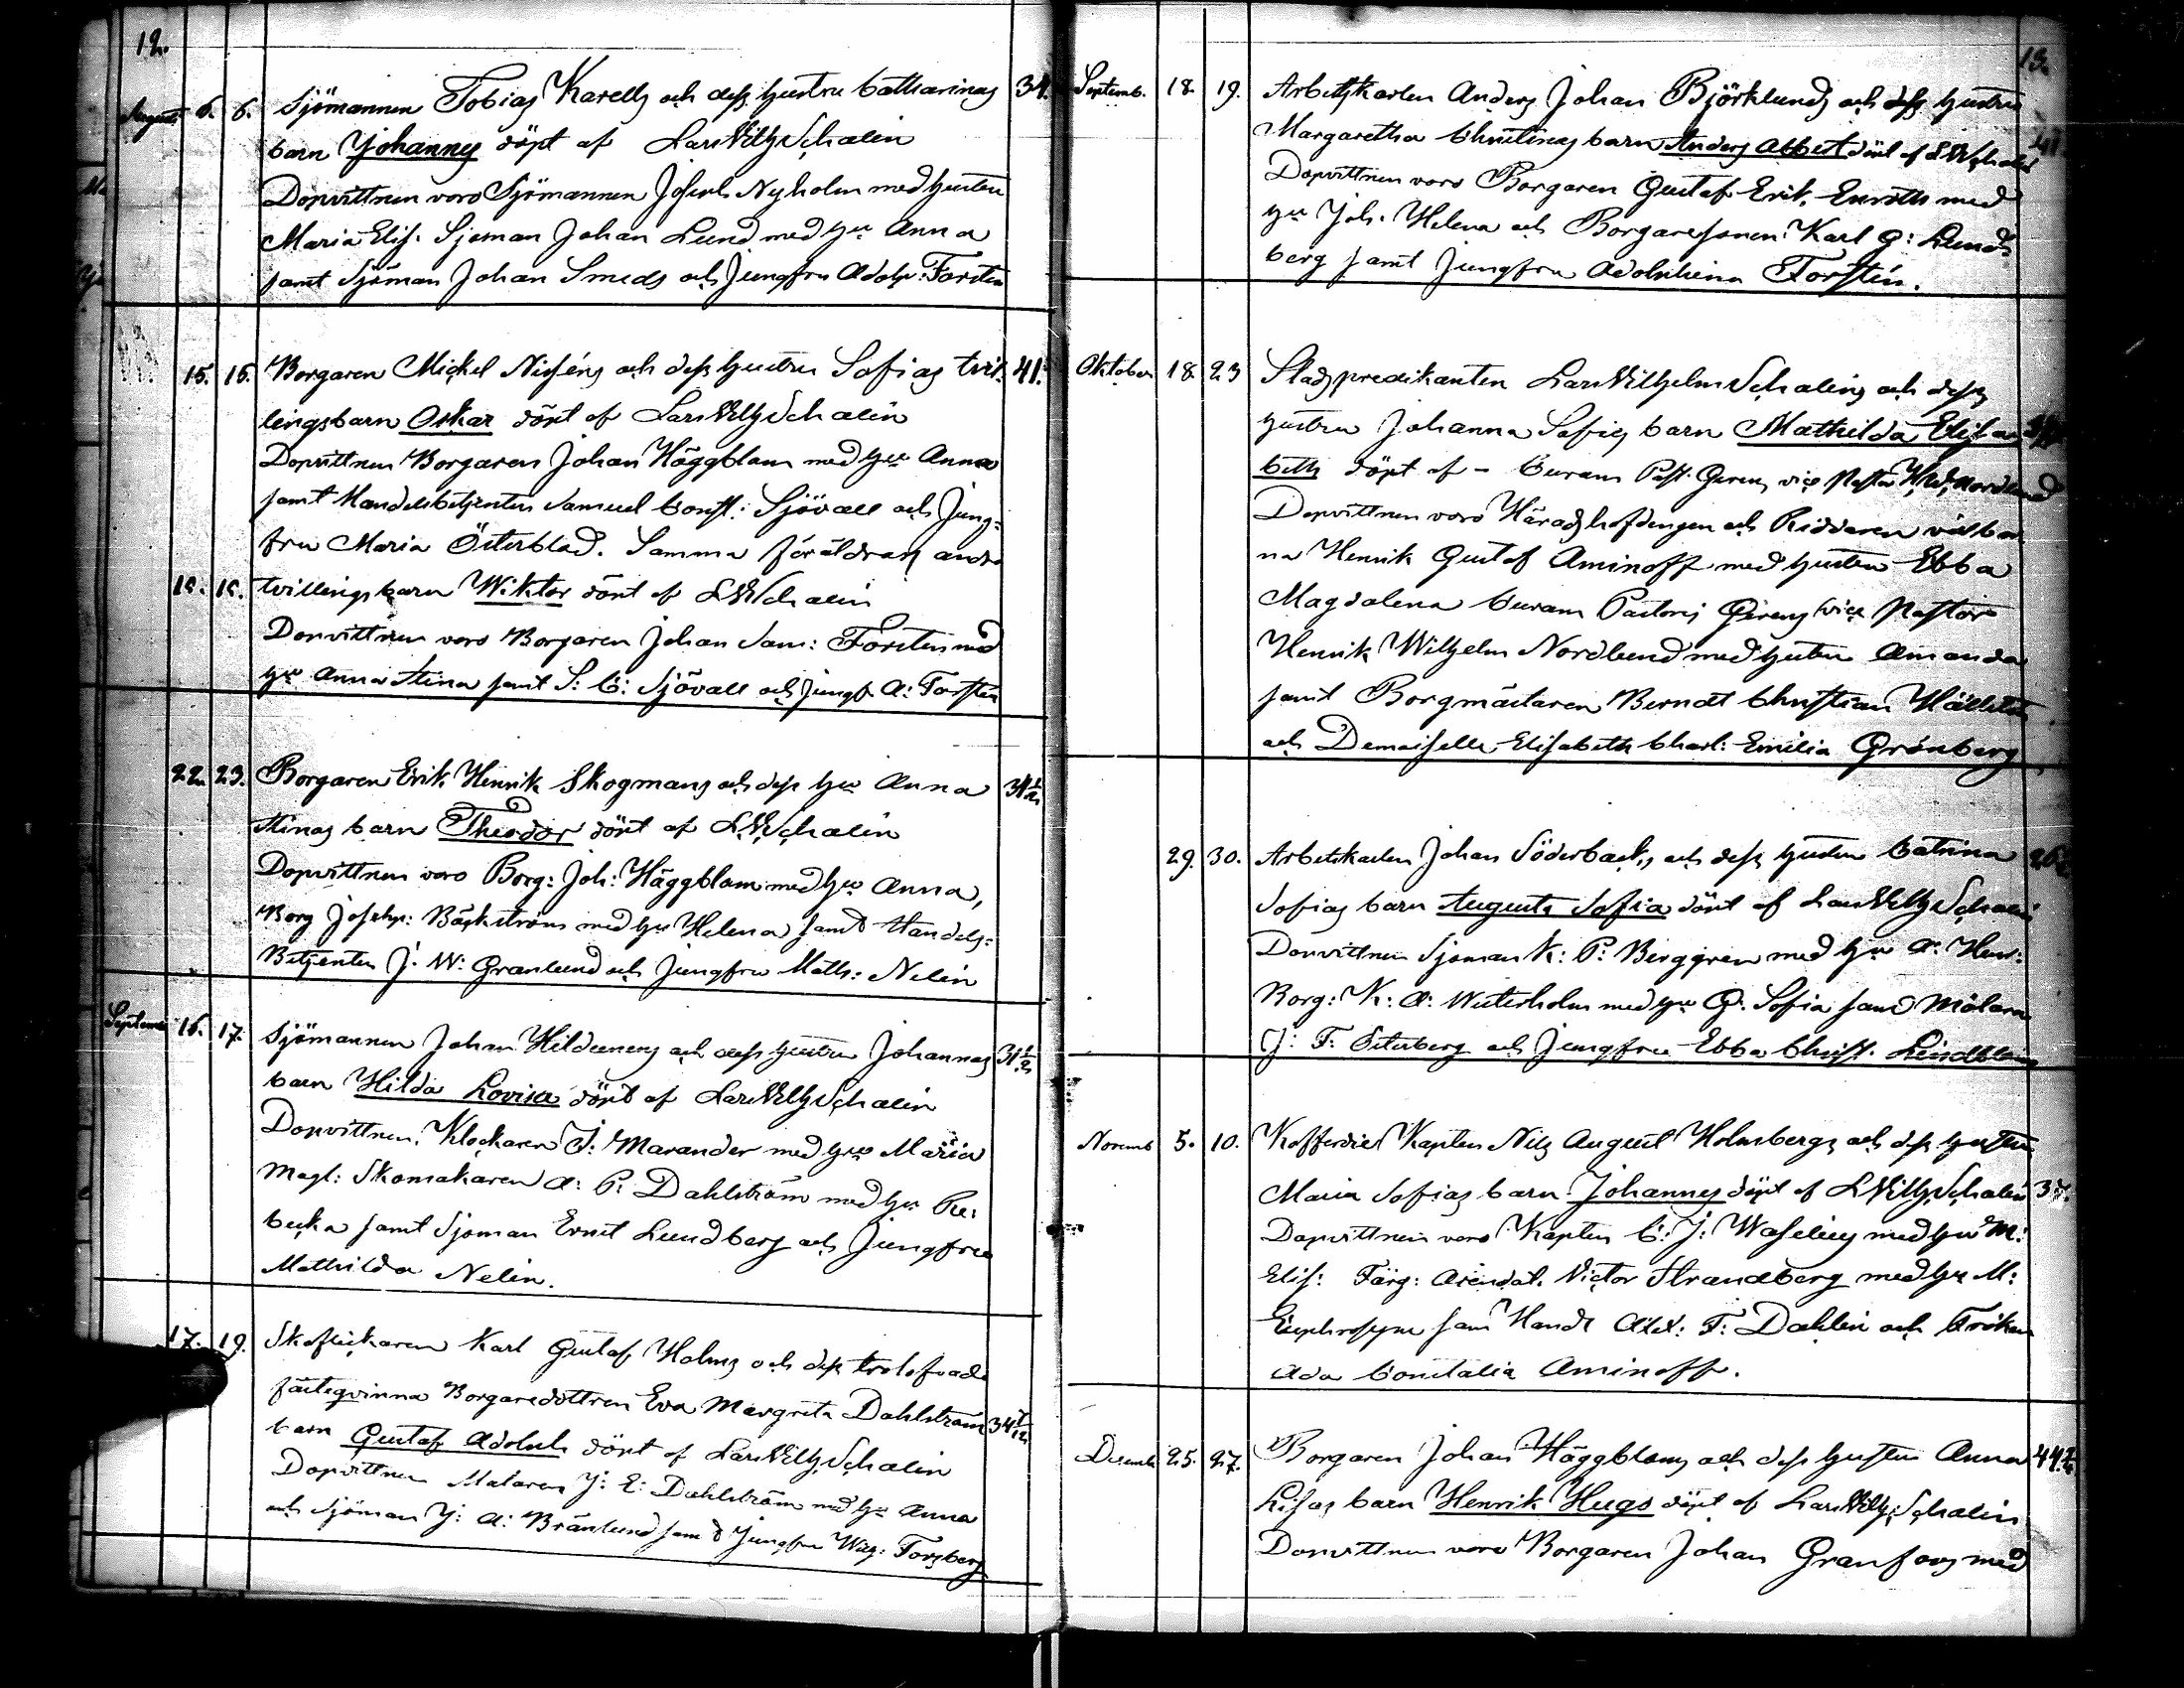 12.
Augusti 6. 6. Sjömannen Tobias Karells och dess hustru Catharinas 34.
barn Johannes döpt af Lars Wilh Schalin
Dopvittnen voro Sjömannen Joseph Nyholm med hustru
Maria Elis. Sjöman Johan Lund med hu Anna
samt Sjöman Johan Smeds och Jungfru Adolp: Forsten
15. 15. Borgaren Mickel Niséns och dess hustru Sofias tvil- 41.
lingsbarn Oskar döpt af Lars Wilh Schalin
Dopvittnen Borgaren Johan Häggblom med hu Anna
samt Handelsbetjenten Samuel Const: Sjövall och Jung-
fru Maria Österblad. Samma föräldrars andra
15. 15. tvillingsbarn Wiktor döpt af LW Schalin
Dopvittnen voro Borgaren Johan Sam: Forsten med
hu Anna Stina samt S: C: Sjövall och jungf. A: Forsten
22. 23. Borgaren Erik Henrik Skogmans och dess hu Anna 34½
Stinas barn Theodor döpt af L.W. Schalin
Dopvittnen voro Borg: Joh: Häggblom med hu Anna,
Borg Joseph: Bäckström med hu Helena samt Handels-
Betjenten J. W: Granlund och Jungfru Math: Nelin
Septemb 16. 17. Sjömannen Johan Hildeens och dess hustru Johannas 31½
barn Hilda Lovisa döpt af Lars Wilh Schalin
Dopvittnen, Klockaren J: Marander med hu Maria
Magl: Skomakaren A: P: Dahlström med hu Re-
becka samt Sjöman Ernst Lundberg och Jungfru
Mathilda Nelin.
17. 19. Skoflickaren Karl Gustaf Holms och dess trolofvade
fästeqvinna Borgaredottren Eva Margreta Dahlström 34
barn Gustaf Adolph döpt af Lars Wilh. Schalin
Dopvittnen Målaren J: E: Dahlström med hu Anna
och Sjöman J: A: Bränlund samt Jungfru Wilh: Forsberg
13.
Septemb. 18. 19. Arbetskarlen Anders Johan Björklunds och dess hustru
Margaretha Christinas barn Anders Albert döpt af LW Schalin 41.
Dopvittnen voro Borgaren Gustaf Erik Enroth med
hu Joh. Helena och Borgaresonen Karl G: Lund-
berg samt Jungfru Adolphina Forstén.
Oktober 18. 23 Stadspredikanten Lars Wilhelm Schalins och dess
hustru Johanna Sofias barn Mathilda Elisa-
beth döpt af - Curam Past. Gerens vice Pastor H.W. Nordlund
Dopvittnen voro Häradshöfdingen och Riddaren välbor-
na Henrik Gustaf Aminoff med hustru Ebba
Magdalena Curam Pastoris Gerens vice Pastor
Henrik Wilhelm Nordlund med hustru Amanda
samt Borgmästaren Berndt Christian Hällsten
och Demoiselle Elisabeth Charl: Emilia Grönberg
29. 30. Arbetskarlen Johan Söderbacks och dess hustru Catrina 26
Sofias barn Augusta Sofia döpt af Lars Wilh Schalin
Dopvittnen Sjöman K: P: Berggren med hu A: Henr:
Borg: K: A: Westerholm med hu G. Sofia samt Målaren
J: F: Österberg och Jungfru Ebba Christ. Lindblom
Novemb 5. 10. Kofferdie Kapten Nils August Holmbergs och dess hustru
Maria Sofias barn Johannes döpt af L Wilh. Schalin 37.
Dopvittnen voro Kapten C: J: Waselius med hu M:
Elis: Färg: Arendat. Victor Strandberg med hu M:
Euphrosyne samt Handl Alex: F: Dahlin och Fröken
Ada Constalia Aminoff.
Decemb 25. 27. Borgaren Johan Häggbloms och dess hustru Anna 44
Lisas barn Henrik Hugo döpt af Lars Wilh: Schalin
Dopvittnen voro Borgaren Johan Granfors med